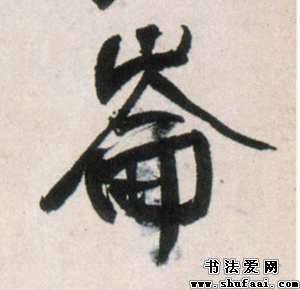 崙
书法爱网
www.shufaai.com